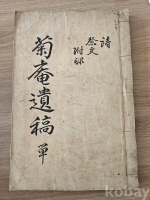 詩
祭文
附録
菊庵遺稿 單
kobay